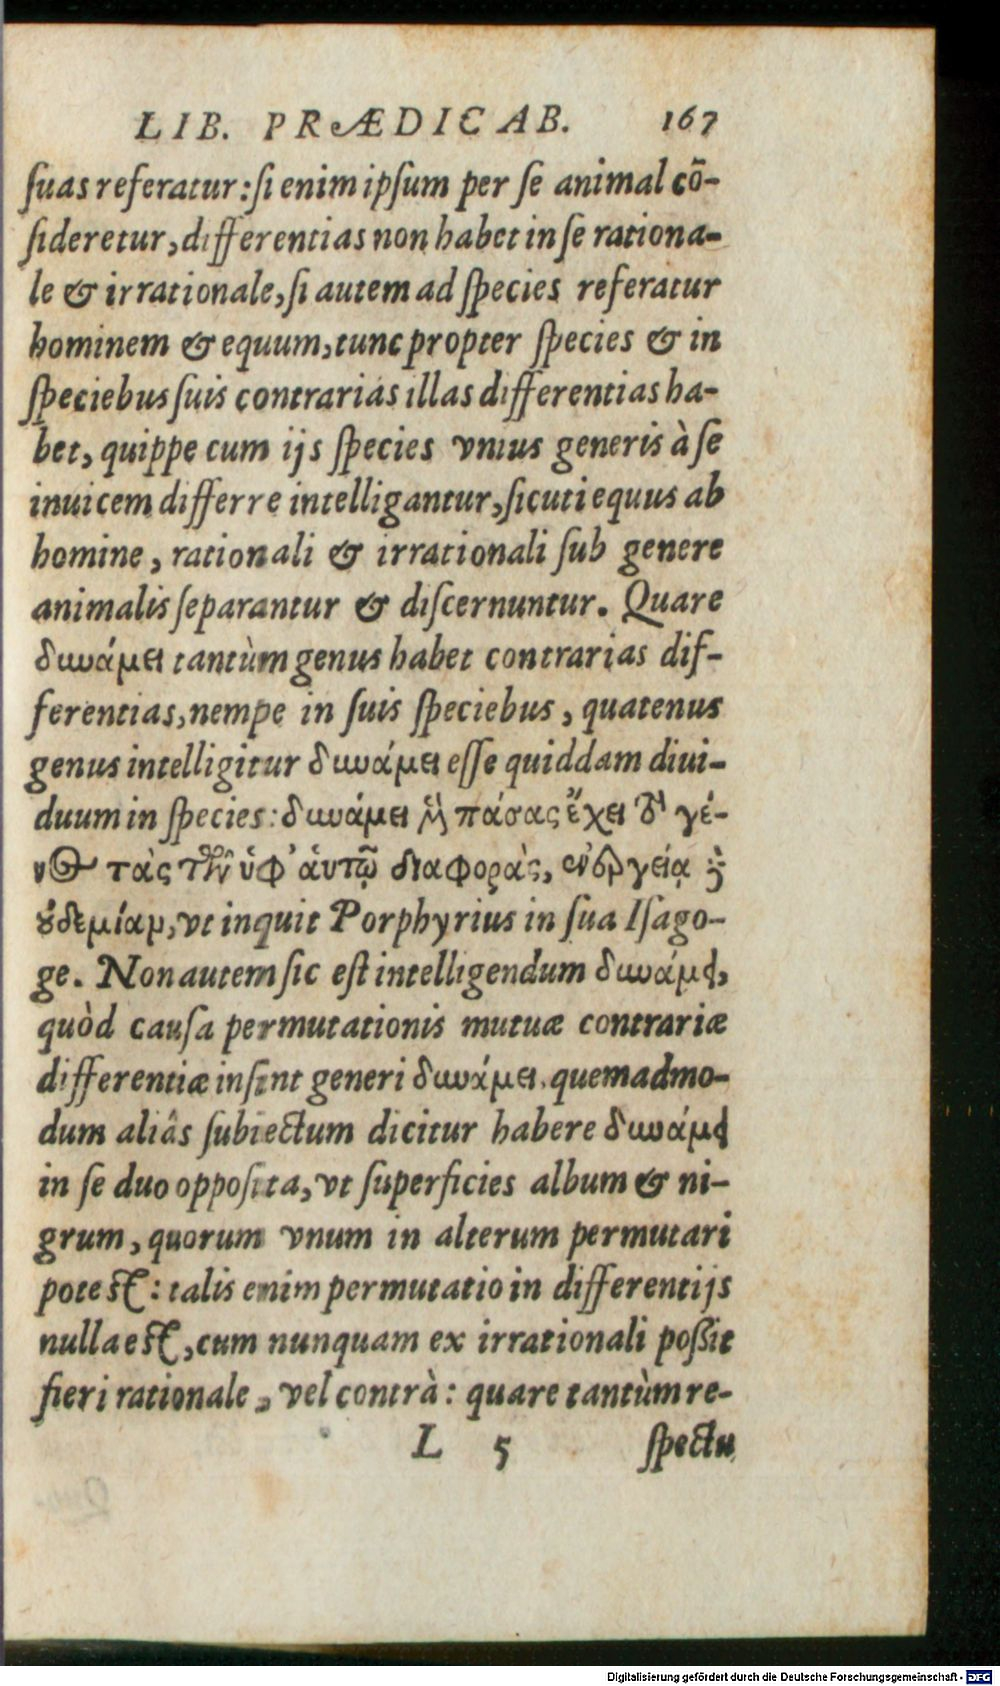 LIB. PRÆDICAB. 167
suas referatur: si enim ipsum per se animal cō-
sideretur, differentias non habet in se rationa-
le & irrationale, si autem ad species referatur
hominem & equum, tunc propter species & in
speciebus suis contrarias illas differentias ha-
bet, quippe cum ijs species vnius generis à se
inuicem differre intelligantur, sicuti equus ab
homine, rationali & irrationali sub genere
animalis separantur & discernuntur. Quare
δυνάμει tantùm genus habet contrarias dif-
ferentias, nempe in suis speciebus, quatenus
genus intelligitur δυνάμει esse quiddam diui-
duum in species: δυνάμει μὲν πάσας ἔχει τὸ γέ-
νος τὰς τῶν ὑφ' ἁυτῷ διαφορὰς, ἐνεργείᾳ δὲ
ȣδεμίαν, vt inquit Porphyrius in sua Isago-
ge. Non autem sic est intelligendum δυνάμει,
quòd causa permutationis mutuæ contrariæ
differentiæ insint generi δυνάμει. quemadmo-
dum aliâs subiectum dicitur habere δυνάμει
in se duo opposita, vt superficies album & ni-
grum, quorum vnum in alterum permutari
potest: talis enim permutatio in differentijs
nulla est, cum nunquam ex irrationali poßit
fieri rationale, vel contrà: quare tantùm re-
L 5 spectu
Digitalisierung gefördert durch die Deutsche Forschungsgemeinschaft - DFG